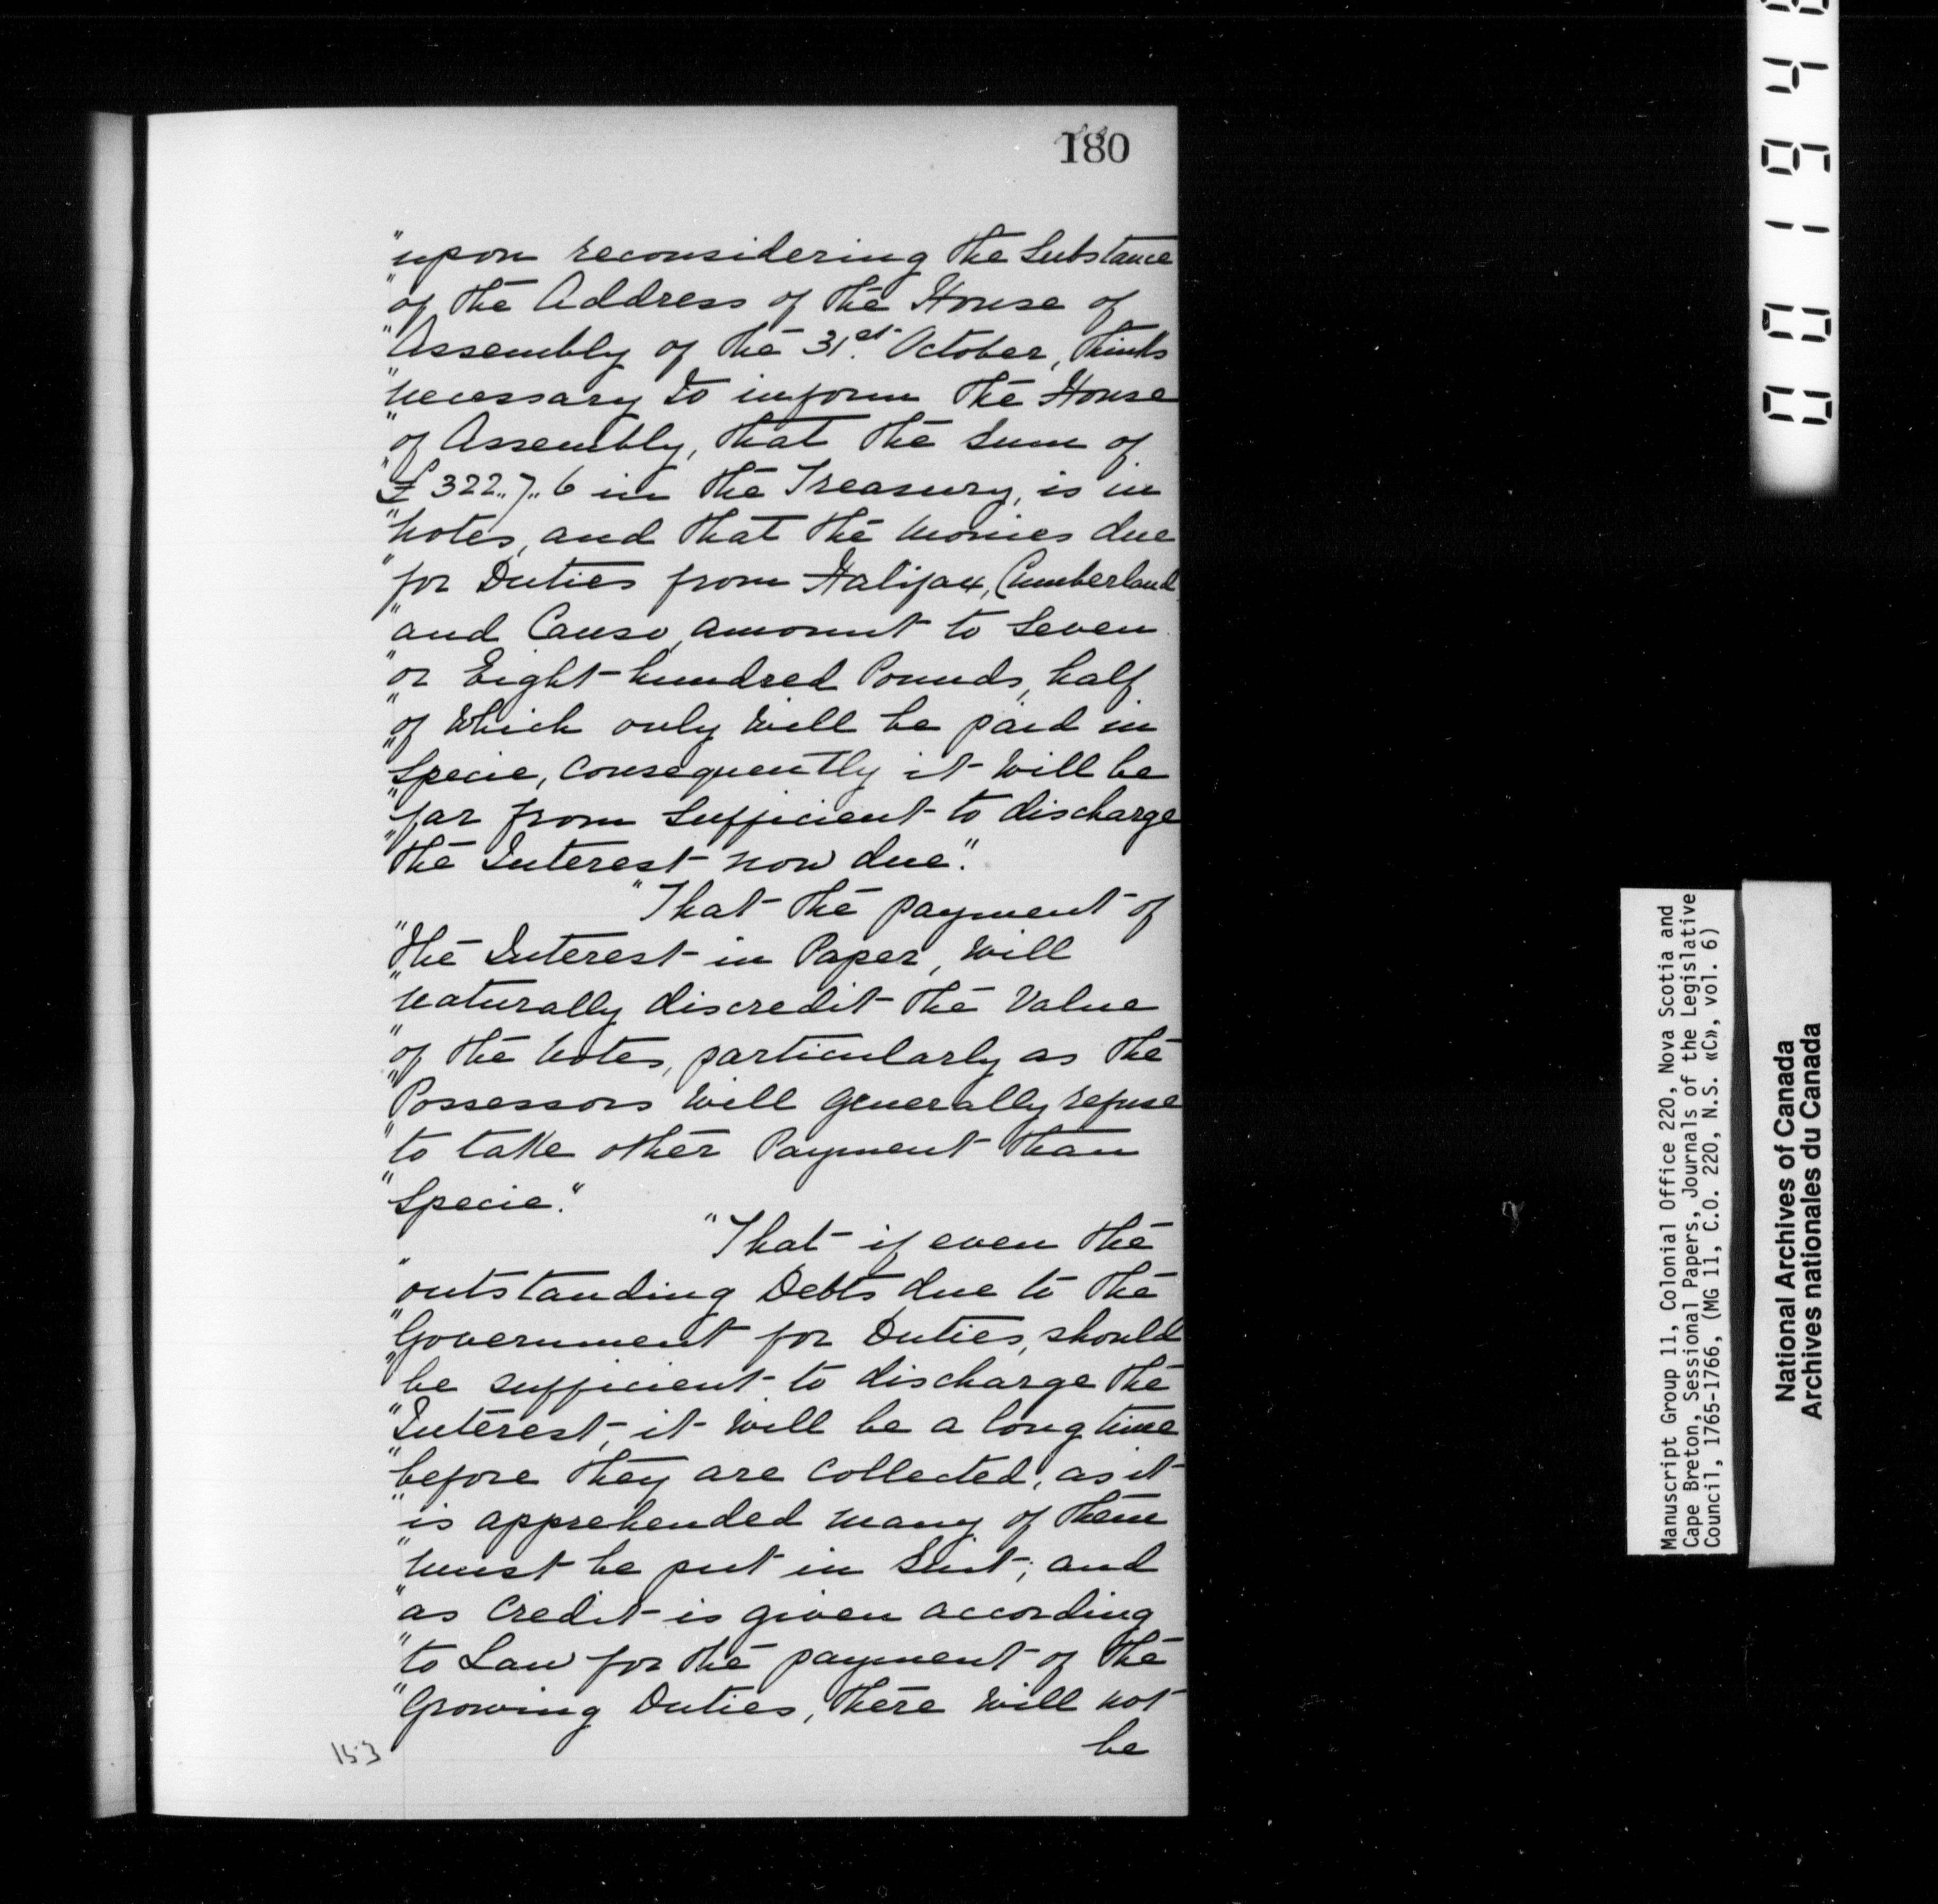 180
"upon reconsidering the Substance
"of the Address of the House of
"Assembly of the 31st October, thinks
"necessary to inform the House
"of Assembly, that the Sum of
"£322,,7,,6 in the Treasury, is in
"Notes, and that the Monies due
"for Duties from Halifax, Cumberland
"and Canso, amount to Seven
"or Eight-hundred Pounds, half
"of Which only Will be paid in
"Specie, Consequently it Will be
"far from Sufficient to discharge
"the Interest now due."
"That the payment of
"the Interest in Paper, Will
"Naturally discredit the Value
"of the Notes, particularly as the
"Possessors Will generally refuse
"to take other Payment than
"Specie."
"That if even the
"outstanding Debts due to the
"Government for Duties, should
"be sufficient to discharge the
"Interest, it Will be a long time
"before they are Collected, as it
"is apprehended Many of them
"Must be put in Suit; and
"as Credit is given according
"to Law for the payment of the
"Growing Duties, there Will not
be
153
Manuscript Group 11, Colonial Office 220, Nova Scotia and
Cape Breton, Sessional Papers, Journals of the Legislative
Council, 1765-1766, (MG 11, C.O. 220, N.S. «C», vol. 6)
National Archives of Canada
Archives nationales du Canada